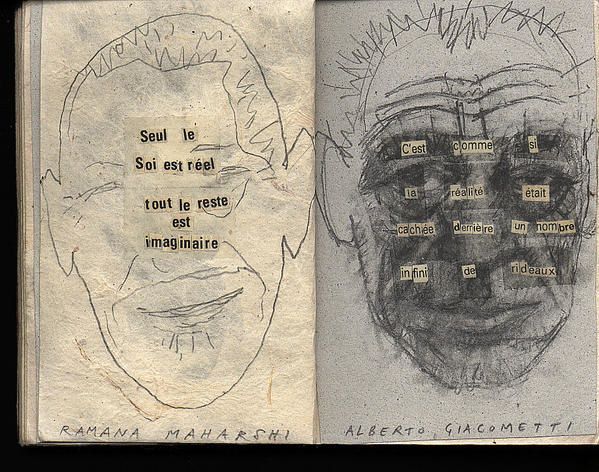 Seul le
Soi est réel
tout le reste
est
imaginaire
RAMANA MAHARSHI
C'est comme si
la réalité était
cachée derrière un nombre
infini de rideaux
ALBERTO GIACOMETTI